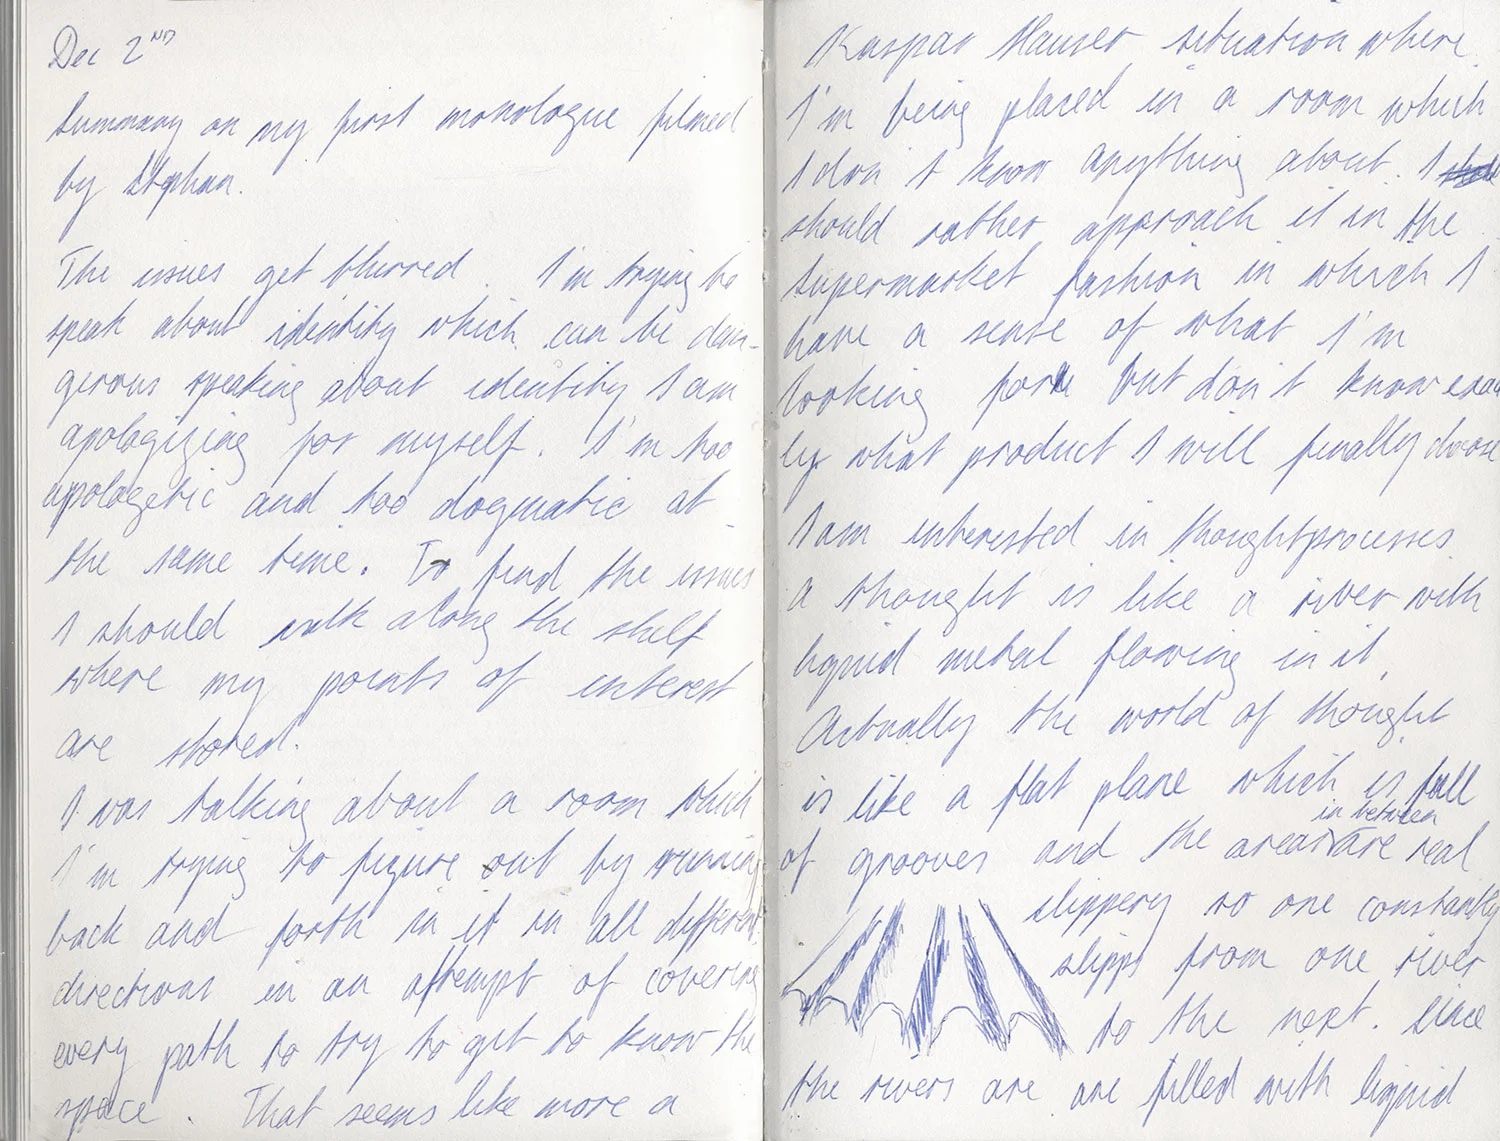 Dec 2ND
Summary on my first monologue filmed
by Stephan.
The issues get blurred. I'm trying to
speak about identity which can be dan-
gerous speaking about identity I am
apologizing for myself. I'm too
apologetic and too dogmatic at
the same time. To find the issues
I should walk along the shelf
where my points of interest
are stored.
I was talking about a room which
I'm trying to figure out by running
back and forth in it in all different
directions in an attempt of covering
every path to try to get to know the
space. That seems like more a
Kaspar Hauser situation where
I'm being placed in a room which
I don't know anything about. I
should rather approach it in the
supermarket fashion in which I
have a sense of what I'm
looking for but don't know exact
ly what product I will finally choose
I am interested in thoughtprocesses
a thought is like a river with
liquid metal flowing in it.
Actually the world of thought
is like a flat plane which is full
of grooves and the areas in between are real
slippery so one constantly
slipps from one river
to the next. Since
the rivers are are filled with liquid